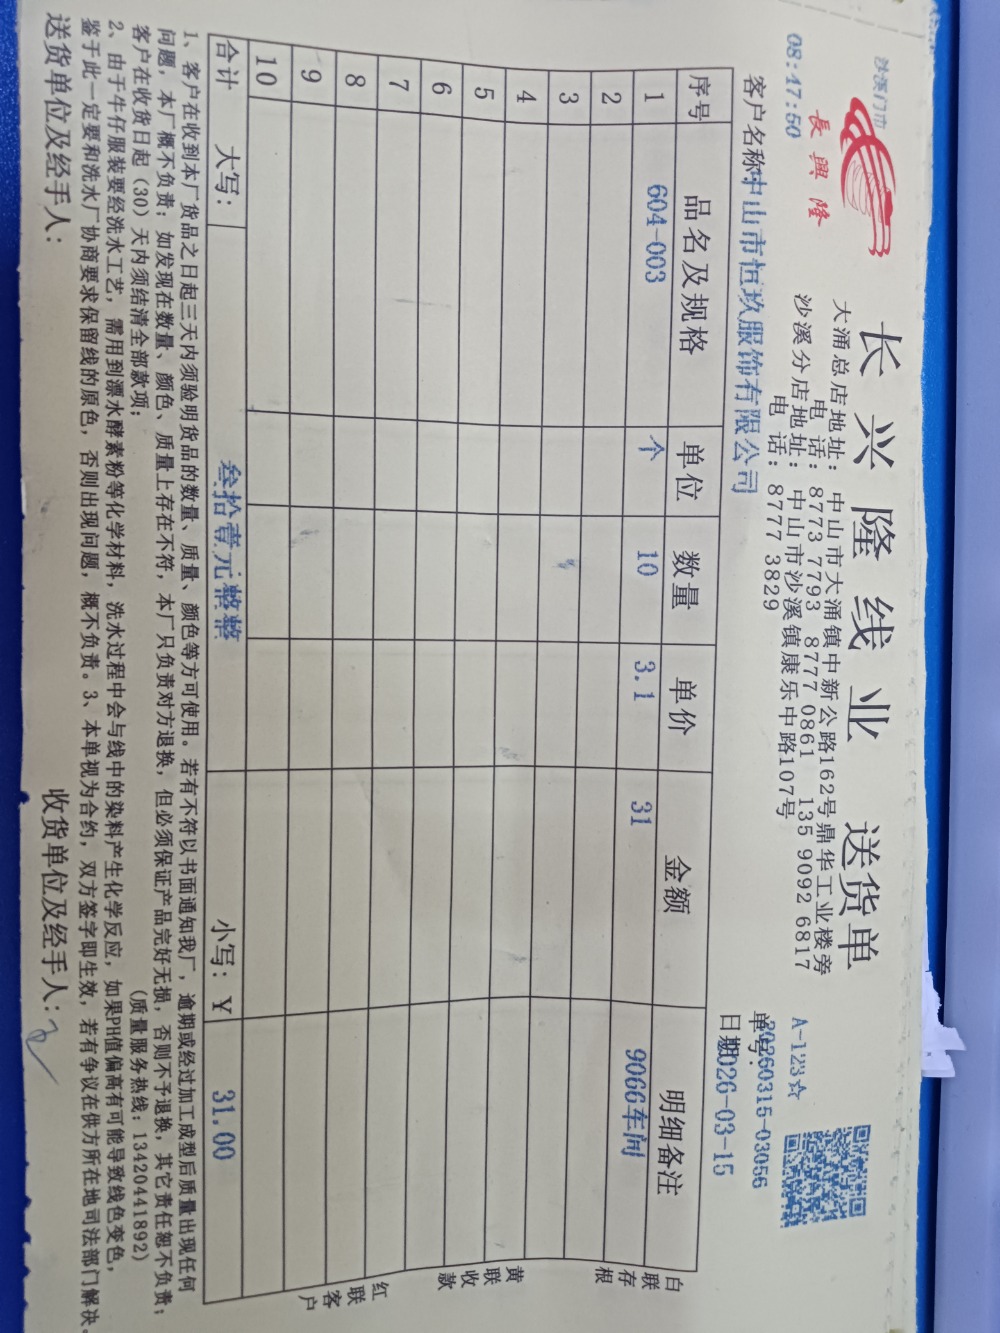 沙溪门市
08:47:50
長興隆
长兴隆线业 送货单
大涌总店地址：中山市大涌镇中新公路162号鼎华工业楼旁
电 话：8773 7793 8777 0861 135 9092 6817
沙溪分店地址：中山市沙溪镇康乐中路107号
电 话：8777 3829
A-123☆
单号：20260315-03056
客户名称：中山市恒玖服饰有限公司
日期：2026-03-15
序号 品名及规格 单位 数量 单价 金额 明细备注
1 604-003 个 10 3.1 31 9066车间
2
3
4
5
6
7
8
9
10
合计 大写： 叁拾壹元整整 小写：￥ 31.00
白联存根
黄联收款
红联客户
1、客户在收到本厂货品之日起三天内须验明货品的数量、质量、颜色等方可使用。若有不符以书面通知我厂，逾期或经过加工成型后质量出现任何
问题，本厂概不负责；如发现在数量、颜色、质量上存在不符，本厂只负责对方退换，但必须保证产品完好无损，否则不予退换，其它责任恕不负责；
客户在收货日起（30）天内须结清全部款项； （质量服务热线：13420441892）
2、由于牛仔服装要经洗水工艺，需用到漂水酵素粉等化学材料，洗水过程中会与线中的染料产生化学反应，如果PH值偏高有可能导致线色变色，
鉴于此一定要和洗水厂协商要求保留线的原色，否则出现问题，概不负责。3、本单视为合约，双方签字即生效，若有争议在供方所在地司法部门解决。
送货单位及经手人： 收货单位及经手人：